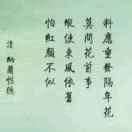 料應重發隔年花
莫問花前事
縱使東風依舊
怕紅顏不似
清 納蘭性德